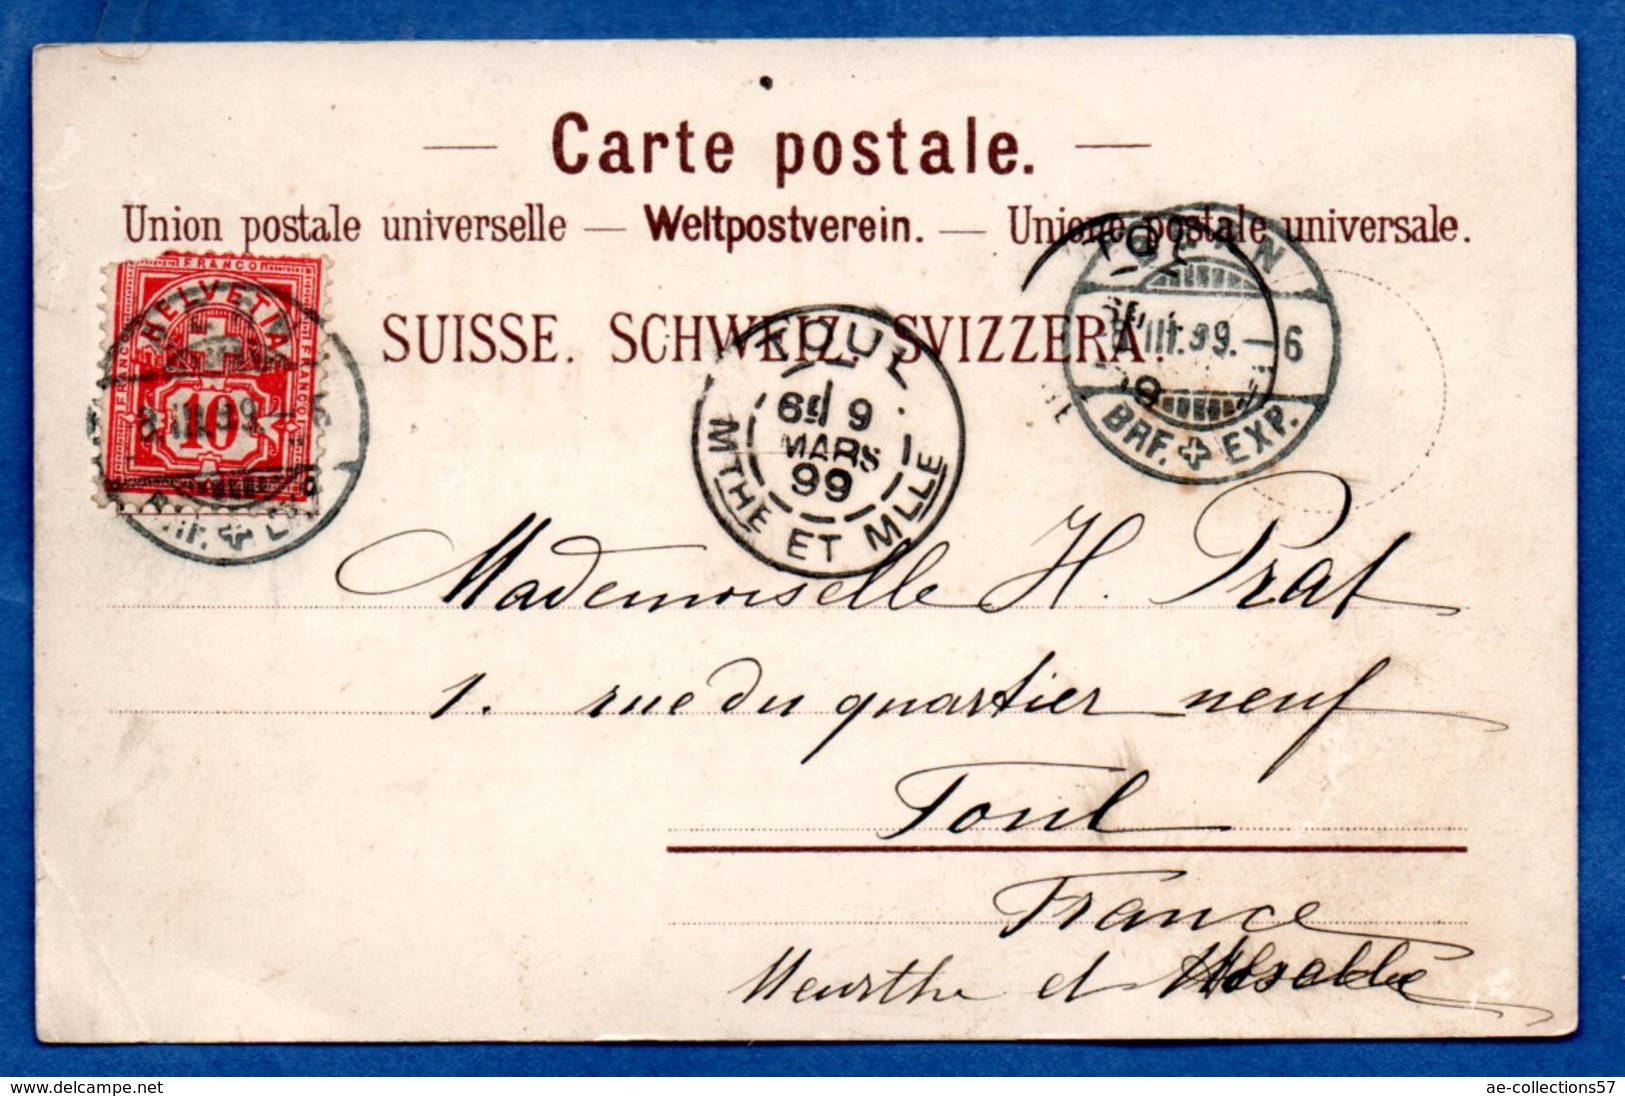 — Carte postale. —
Union postale universelle — Weltpostverein. — Unione postale universale.
SUISSE. SCHWEIZ. SVIZZERA.
FRANCO
HELVETIA
FRANCO
FRANCO
10
TOUL
6E 9
MARS
99
MTHE ET MLLE
III.99.—6
BRF. EXP.
Mademoiselle H. Prat
1. rue du quartier neuf
Toul
France
Meurthe et Moselle
delcampe.net
ae-collections57